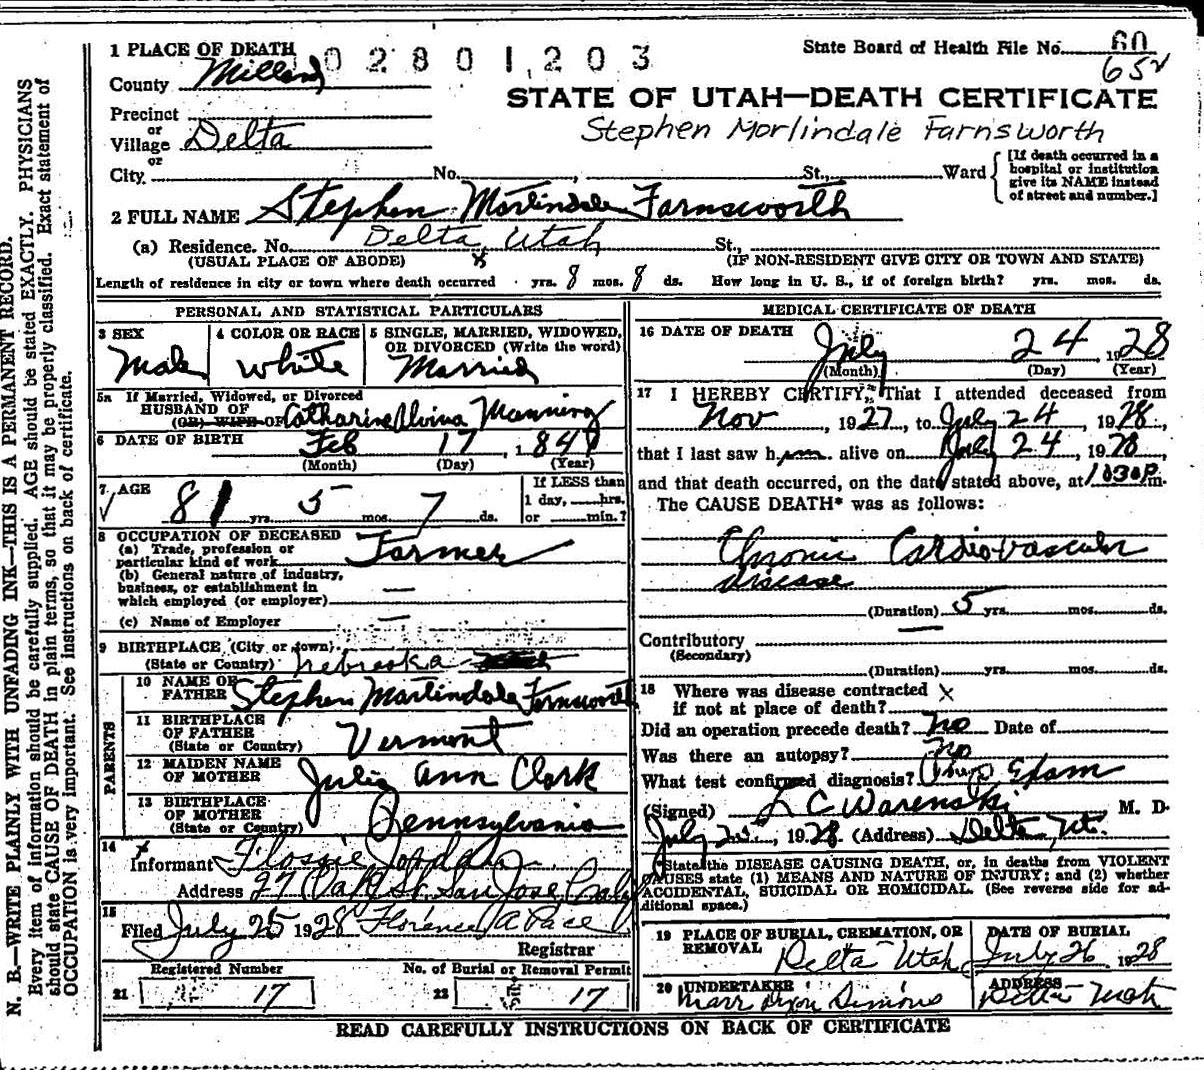 1 PLACE OF DEATH 02801203 State Board of Health File No. 60
652
County Millard
STATE OF UTAH—DEATH CERTIFICATE
Precinct
or
Village Delta
Stephen Morlindale Farnsworth
or
City No. St., Ward
[If death occurred in a hospital or institution give its NAME instead of street and number.]
2 FULL NAME Stephen Martindale Farnsworth
(a) Residence. No. Delta, Utah St.,
(USUAL PLACE OF ABODE) x (IF NON-RESIDENT GIVE CITY OR TOWN AND STATE)
Length of residence in city or town where death occurred yrs. 8 mos. 8 ds. How long in U. S., if of foreign birth? yrs. mos. ds.
PERSONAL AND STATISTICAL PARTICULARS
3 SEX 4 COLOR OR RACE 5 SINGLE, MARRIED, WIDOWED, OR DIVORCED (Write the word)
Male White Married
5a If Married, Widowed, or Divorced
HUSBAND OF
(OR) WIFE OF Catharine Alvina Manning
6 DATE OF BIRTH Feb 17, 1847
(Month) (Day) (Year)
7 AGE If LESS than
1 day, hrs.
81 yrs. 5 mos. 7 ds. or min.?
8 OCCUPATION OF DECEASED
(a) Trade, profession or
particular kind of work Farmer
(b) General nature of industry,
business, or establishment in
which employed (or employer) —
(c) Name of Employer —
9 BIRTHPLACE (City or town)
(State or Country) Nebraska
PARENTS
10 NAME OF
FATHER Stephen Martindale Farnsworth
11 BIRTHPLACE
OF FATHER
(State or Country) Vermont
12 MAIDEN NAME
OF MOTHER Julia Ann Clark
13 BIRTHPLACE
OF MOTHER
(State or Country) Pennsylvania
14 x
Informant Flossie Jordan
Address 27 Oak St. San Jose,
15
Filed July 25 1928 Florence A Pace
Registrar
Registered Number No. of Burial or Removal Permit
21 17 22 17
MEDICAL CERTIFICATE OF DEATH
16 DATE OF DEATH July 24 1928
(Month) (Day) (Year)
17 I HEREBY CERTIFY, That I attended deceased from
Nov, 1927, to July 24, 1928,
that I last saw him alive on July 24, 1928,
and that death occurred, on the date stated above, at 1030P m.
The CAUSE DEATH* was as follows:
Chronic Cardio-Vascular
disease
(Duration) 5 yrs. mos. ds.
Contributory —
(Secondary)
(Duration) yrs. mos. ds.
18 Where was disease contracted x
if not at place of death?
Did an operation precede death? No Date of
Was there an autopsy? No
What test confirmed diagnosis? Phys Exam
(Signed) L C Warenski M. D.
July 25, 1928 (Address) Delta Ut.
*State the DISEASE CAUSING DEATH, or, in deaths from VIOLENT
CAUSES state (1) MEANS AND NATURE OF INJURY; and (2) whether
ACCIDENTAL, SUICIDAL OR HOMICIDAL. (See reverse side for ad-
ditional space.)
19 PLACE OF BURIAL, CREMATION, OR REMOVAL DATE OF BURIAL
Delta Utah July 26, 1928
20 UNDERTAKER ADDRESS
Simons Delta Utah
READ CAREFULLY INSTRUCTIONS ON BACK OF CERTIFICATE
N. B.—WRITE PLAINLY WITH UNFADING INK—THIS IS A PERMANENT RECORD.
Every item of information should be carefully supplied. AGE should be stated EXACTLY. PHYSICIANS
should state CAUSE OF DEATH in plain terms, so that it may be properly classified. Exact statement of
OCCUPATION is very important. See instructions on back of certificate.